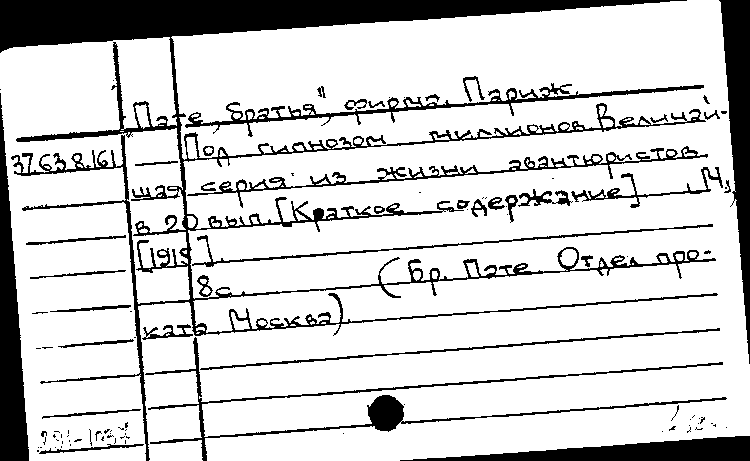 "Пате, братья", фирма. Париж.
37.63.8.161 Под гипнозом миллионов. Величай-
шая серия из жизни авантюристов
в 20 вып. [Краткое содержание] М.,
[1915].
8с. (Бр. Пате. Отдел про-
ката Москва).
291-1037